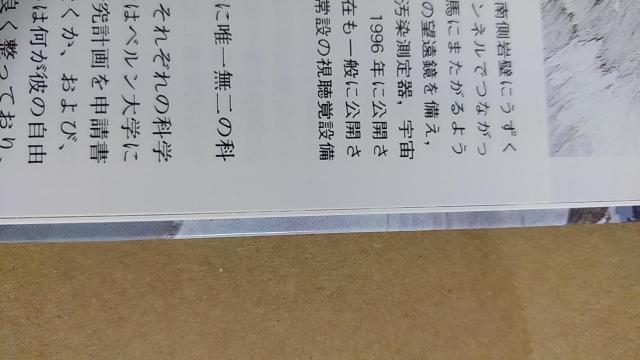 南側岩壁にうずく
ンネルでつながっ
馬にまたがるよう
の望遠鏡を備え，
汚染測定器，宇宙
1996 年に公開さ
在も一般に公開さ
常設の視聴覚設備
に唯一無二の科
それぞれの科学
はベルン大学に
究計画を申請書
くか、および、
は何が彼の自由
良く整っており、